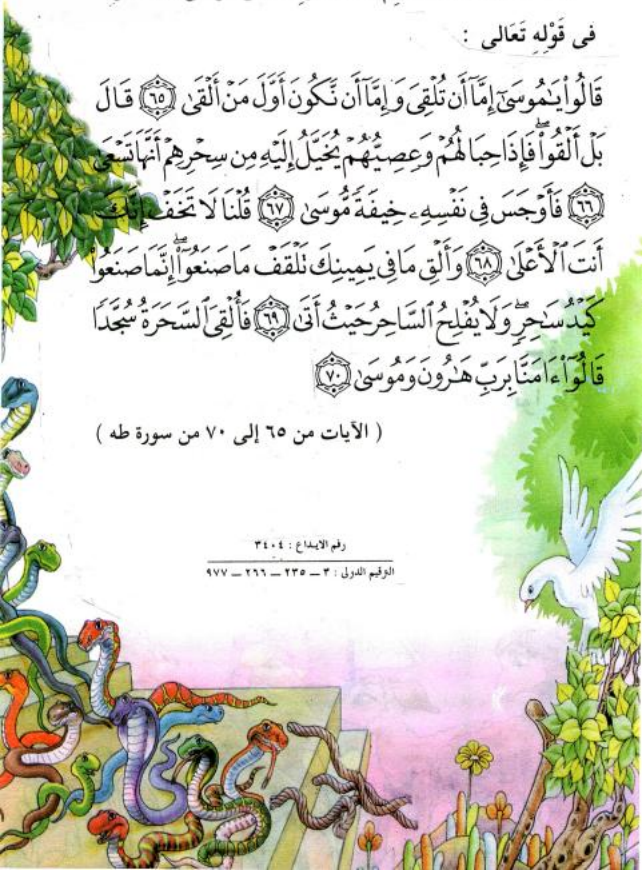 فى قَوْلِهِ تَعَالَى :
قَالُواْ يَٰمُوسَىٰٓ إِمَّآ أَن تُلْقِىَ وَإِمَّآ أَن نَّكُونَ أَوَّلَ مَنْ أَلْقَىٰ ٦٥ قَالَ
بَلْ أَلْقُواْ ۖ فَإِذَا حِبَالُهُمْ وَعِصِيُّهُمْ يُخَيَّلُ إِلَيْهِ مِن سِحْرِهِمْ أَنَّهَا تَسْعَىٰ
٦٦ فَأَوْجَسَ فِى نَفْسِهِۦ خِيفَةً مُّوسَىٰ ٦٧ قُلْنَا لَا تَخَفْ إِنَّكَ
أَنتَ ٱلْأَعْلَىٰ ٦٨ وَأَلْقِ مَا فِى يَمِينِكَ تَلْقَفْ مَا صَنَعُوٓاْ ۖ إِنَّمَا صَنَعُواْ
كَيْدُ سَٰحِرٍ ۖ وَلَا يُفْلِحُ ٱلسَّاحِرُ حَيْثُ أَتَىٰ ٦٩ فَأُلْقِىَ ٱلسَّحَرَةُ سُجَّدًا
قَالُوٓاْ ءَامَنَّا بِرَبِّ هَٰرُونَ وَمُوسَىٰ ٧٠
( الآيات من ٦٥ إلى ٧٠ من سورة طه )
رقم الايداع : ٣٤٠٤
الترقيم الدولى : ٣ ــ ٢٣٥ ــ ٢٦٦ ــ ٩٧٧